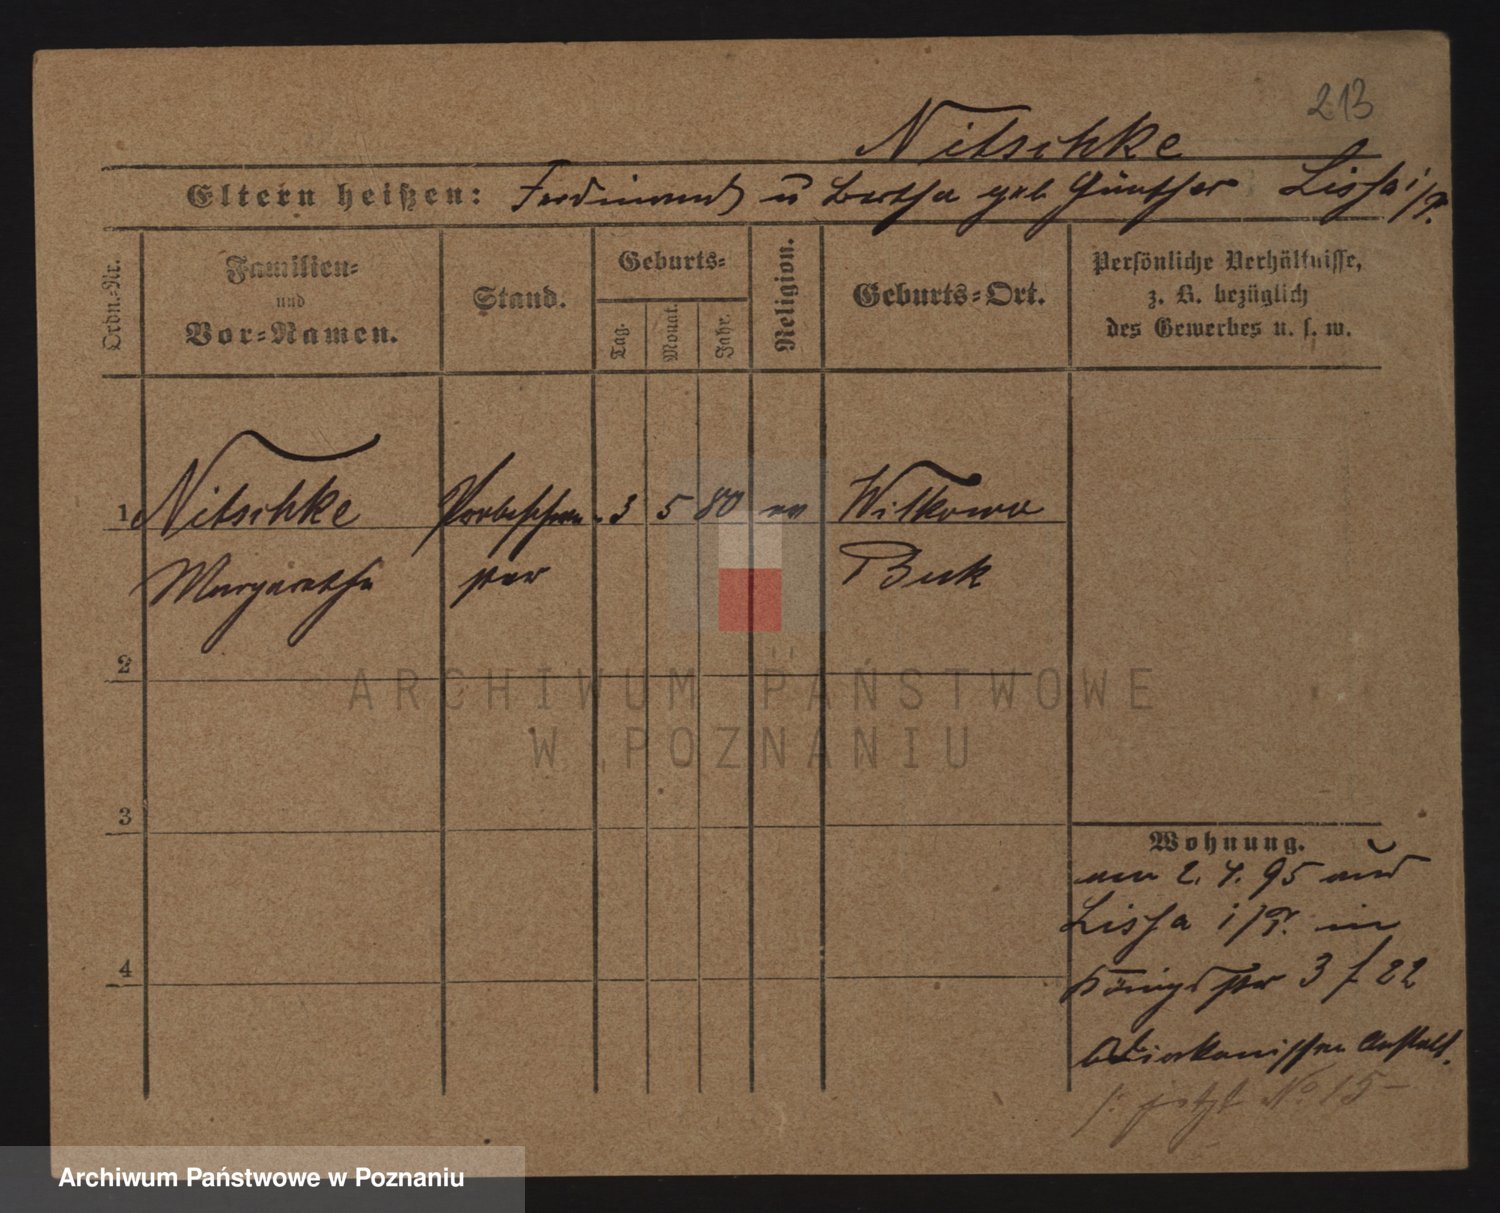 213
Nitschke
Eltern heißen: Ferdinand u Bertha geb Günther Lissa i/P.
Ordn.-Nr.
Familien-
und
Vor-Namen.
Stand.
Geburts-
Tag.
Monat.
Jahr.
Religion.
Geburts-Ort.
Persönliche Verhältnisse,
z. B. bezüglich
des Gewerbes u. s. w.
1 Nitschke 3 5 80 ev Witkowo
Margarethe Buk
2
3
4
Wohnung.
am 2. 4. 95 aus
Lissa i/P. in
Königsstr 3 f 22
Diakonissen Anstalt.
jetzt No 15
ARCHIWUM PAŃSTWOWE
W POZNANIU
Archiwum Państwowe w Poznaniu